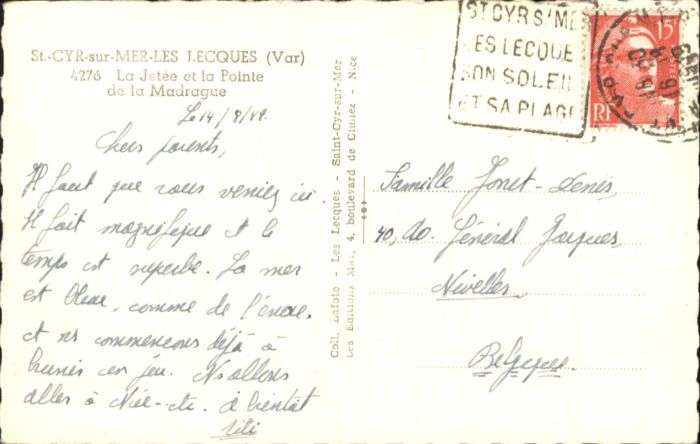 St.-CYR-sur-MER-LES LECQUES (Var)
4276 La Jetée et la Pointe
de la Madrague
Le 14/8/49.
Chers parents,
Il faut que vous veniez ici.
Il fait magnifique et le
temps est superbe. La mer
est bleue, comme de l'encre,
et ns commencons déjà à
brunir un peu. Ns allons
aller à Nice - etc. à bientôt
Titi
Coll. Lafoto - Les Lecques - Saint-Cyr-sur-Mer
Les Editions Mar, 4, boulevard de Cimiez - Nice
ST CYR S/ MER
LES LECQUES
SON SOLEIL
ET SA PLAGE
15F
RF
Famille Jonet-Denis,
40, Général Jacques,
Nivelles
Belgique